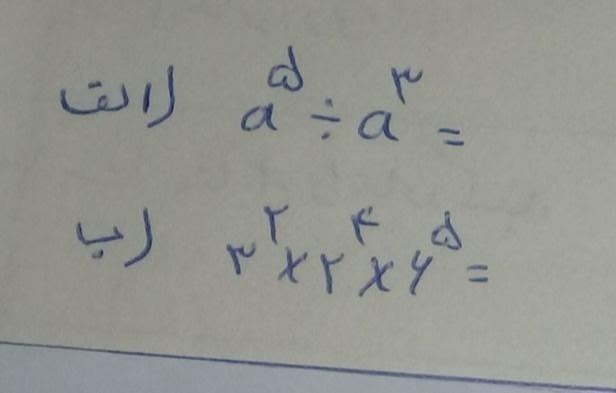 الف) a^۵ ÷ a^۳ =
ب) ۳^۲ × ۲^۴ × ۶^۵ =